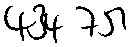 434 751